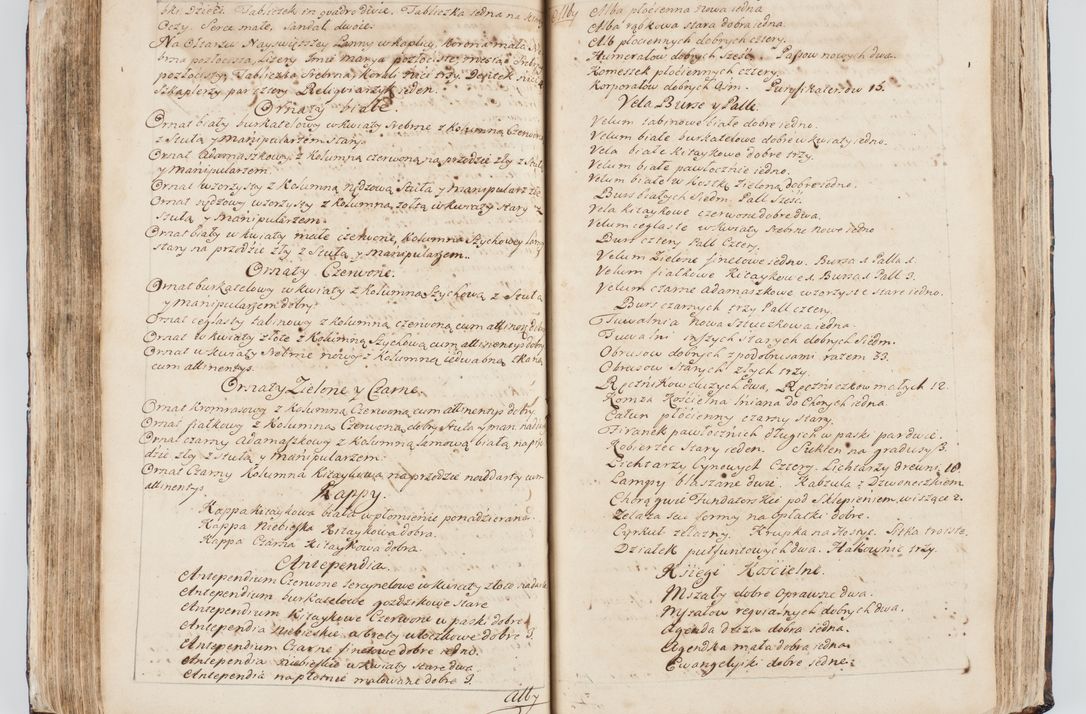 ski Dzieci Tabliczek in quadro dwie. Tabliczka jedna na
Oczy Serce małe, Sandał dwoie.
Na Ołtarzu Nayswiętszey Panny w kaplicy, korona mała
brna pozłocista,
pozłocisty, Tabliczka srebrna, korali nici trzy.
Szkaplerzy par cztery Religiarzyk ieden.
Ornaty białe
Ornat biały burkatelowy w kwiaty srebrne z kolumną czerwon
z Stułą y manipularzem stary.
Ornat Adamaszkowy z kolumną czerwoną na przodzie zły z Stuł
y manipularzem.
Ornat wzorzysty z kolumną rydzową Stułą y manipularz zły
Ornat rydzowy wzorzysty z kolumną żołtą w kwiaty stary z
Stułą y Manipularzem.
Ornat biały w kwiaty małe czerwone, kolumna Szychowey
stary na przodzie zły z Stułą y manipularzem.
Ornaty Czerwone.
Ornat burkatelowy w kwiaty z kolumną Szychową z Stułą
y manipularzem dobry
Ornat ceglasty łalinowy z kolumną czerwoną cum attinen: dobry
Ornat w kwiaty złote z kolumną Szychową cum attinentys dobry
Ornat w kwiaty srebrne nowy z kolumną iedwabną tkaną
cum attinentys.
Ornaty Zielone y Czarne.
Ornat kromrasowy z kolumną Czerwoną cum attinentys dobry.
Ornat fiałkowy z kolumną Czerwoną dobry Stułą y man.
Ornat czarny Adamaszkowy z kolumną lamową białą na prz
dzie zły z Stułą y manipularzem.
Ornat Czarny kolumna kitaykowa na przodzie naddarty cum
attinentys.
Kappy.
Kappa kitaykowa biała w płomienie ponadzierana.
Kappa Niebieska kitaykowa dobra.
Kappa Czarna kitaykowa dobra.
Antependia.
Antependium Czerwone tercynelowe w kwiaty złote
Antependium burkatelowe gozdzikowe stare
Antependium kitaykowe Czerwone w paski dobre
Antependia niebieskie
Antependium Czarne finetowe dobre iedno.
Antependia niebieskie w kwiaty stare dwa.
Antependia na płotnie malowane dobre
Alby
Alby
Alba płocienna nowa iedna
Alba rąbkowa stara dobra iedna
Alb płociennych dobrych cztery.
Humerałow dobrych sześć. Pasow nowych dwa.
Komeszek płociennych cztery.
Korporałow dobrych Puryfikaterzow 15.
Vela Burse y Palle.
Velum tabinowe białe dobre iedno.
Velum białe burkatelowe dobre w kwiaty iedno.
Vela białe kitaykowe dobre trzy.
Velum białe pawłocznie iedno.
Velum białe w kostkę zieloną dobre iedno.
Burs białych siedm. Pall sześć.
Vela kitaykowe czerwone dobre dwa.
Velum ceglaste w kwiaty srebrne nowe iedno
Burs cztery Pall cztery.
Velum zielone finetowe iedno. Bursa 1. Palla 1.
Velum fiałkowe kitaykowe 1. Bursa 1. Pall 3.
Velum czarne Adamaszkowe wzorzyste stare iedno.
Burs czarnych trzy Pall cztery
Tuwalnia nowa sztuczkowa iedna.
Tuwalni inszych starych dobrych siedm.
Obrusow dobrych z podobrusami razem 33.
Obrusow starych złych trzy.
Ręcznikow dużych dwa, Ręczniczkow małych 12.
Komza kościelna lniana do Chorych iedna.
Całun płocienny czarny stary.
Firanek pawłocznich długich w paski par dwie.
Kobierzec stary ieden. Sukien na gradusy 3.
Lichtarzy Cynowych Cztery. Lichtarzy drewni: 18.
Lampy blaszane dwie. Kabzula z Dzwoneczkiem
Chorągwie Fundatorskie pod Sklepieniem wiszące 2.
Zelaza seu formy na opłatki dobre.
Cyrkuł zelazny. Krupka na Hostye. Sitka troiste.
Działek pułfuntowych dwa. Hakownic trzy.
Księgi Kościelne.
Mszały dobre oprawne dwa.
Mszałow requialnych dobrych dwa.
Agenda duża dobra iedna.
Agendka mała dobra iedna.
Ewangeliyki dobre iedne.